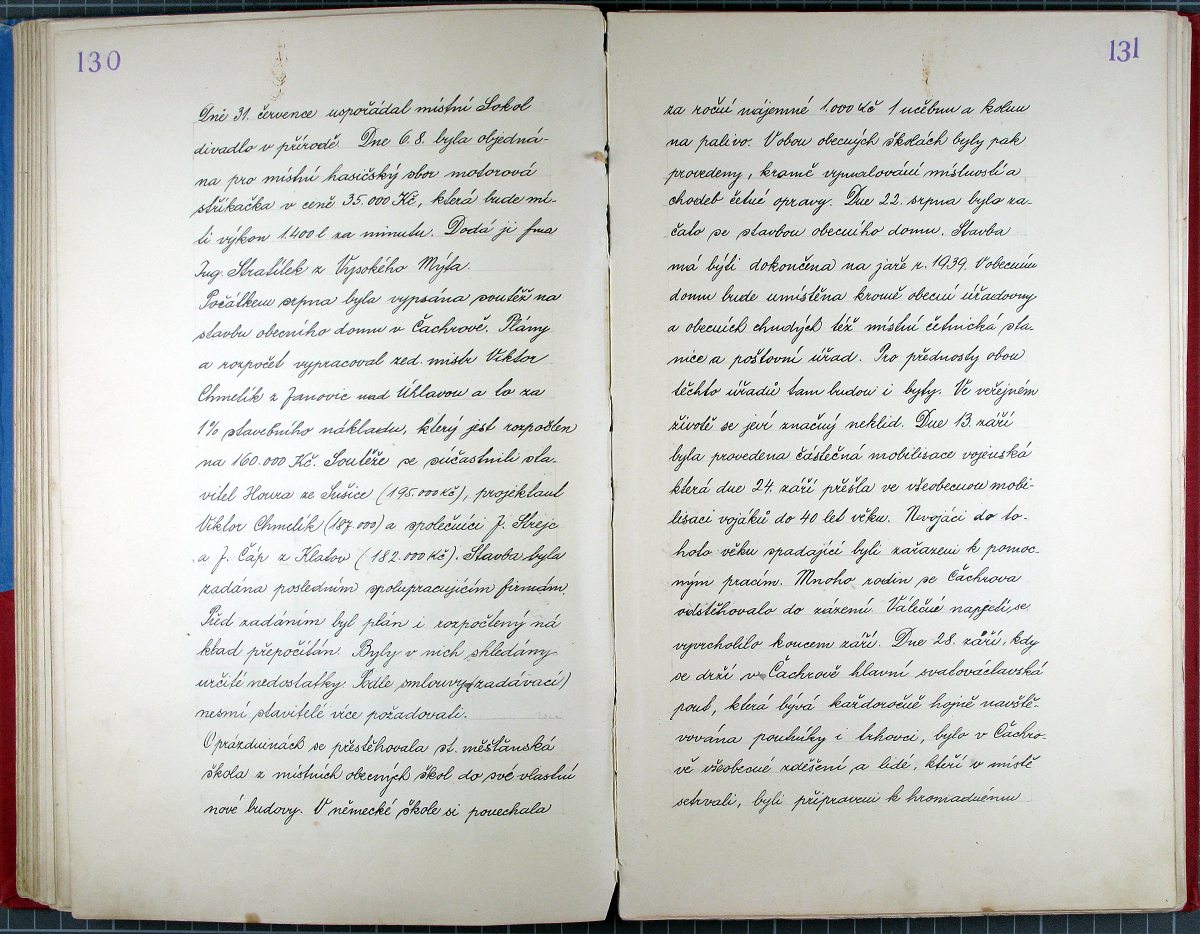 130
Dne 31. července uspořádal místní Sokol
divadlo v přírodě. Dne 6.8. byla objedná-
na pro místní hasičský sbor motorová
stříkačka v ceně 35.000 Kč, která bude mí-
ti výkon 1.400 l za minutu. Dodá ji fma
Ing. Stratílek z Vysokého Mýta.
Počátkem srpna byla vypsána soutěž na
stavbu obecního domu v Čachrově. Plány
a rozpočet vypracoval zed. mistr Viktor
Chmelík z Janovic nad Úhlavou a to za
1% stavebního nákladu, který jest rozpočten
na 160.000 Kč. Soutěže se súčastnili sta-
vitel Houra ze Sušice (195.000 Kč), projektant
Viktor Chmelík (187.000) a společníci J. Strejc
a J. Čáp z Klatov (182.000 Kč). Stavba byla
zadána posledním spolupracujícím firmám.
Před zadáním byl plán i rozpočtený ná
klad přepočítán. Byly v nich shledány
určité nedostatky. Podle smlouvy (zadávací)
nesmí stavitelé více požadovati.
O prázdninách se přestěhovala st. měšťanská
škola z místních obecných škol do své vlastní
nové budovy. V německé škole si ponechala
131
za roční nájemné 1.000 Kč 1 učebnu a kolnu
na palivo. V obou obecných školách byly pak
provedeny, kromě vymalování místností a
chodeb četné opravy. Dne 22. srpna bylo za-
čato se stavbou obecního domu. Stavba
má býti dokončena na jaře r. 1939. V obecním
domu bude umístěna kromě obecní úřadovny
a obecních chudých též místní četnická sta-
nice a poštovní úřad. Pro přednosty obou
těchto úřadů tam budou i byty. Ve veřejném
životě se jeví značný neklid. Dne 13. září
byla provedena částečná mobilisace vojenská
která dne 24. září přešla ve všeobecnou mobi-
lisaci vojáků do 40 let věku. Nevojáci do to-
hoto věku spadající byli zařazeni k pomoc-
ným pracím. Mnoho rodin se Čachrova
odstěhovalo do zázemí. Válečné napjetí se
vyvrcholilo koncem září. Dne 28. září, kdy
se drží v Čachrově hlavní svatováclavská
pout, která bývá každoročně hojně navště-
vována poutníky i trhovci, bylo v Čachro-
vě všeobecné zděšení a lidé, kteří v místě
setrvali, byli připraveni k hromadnému